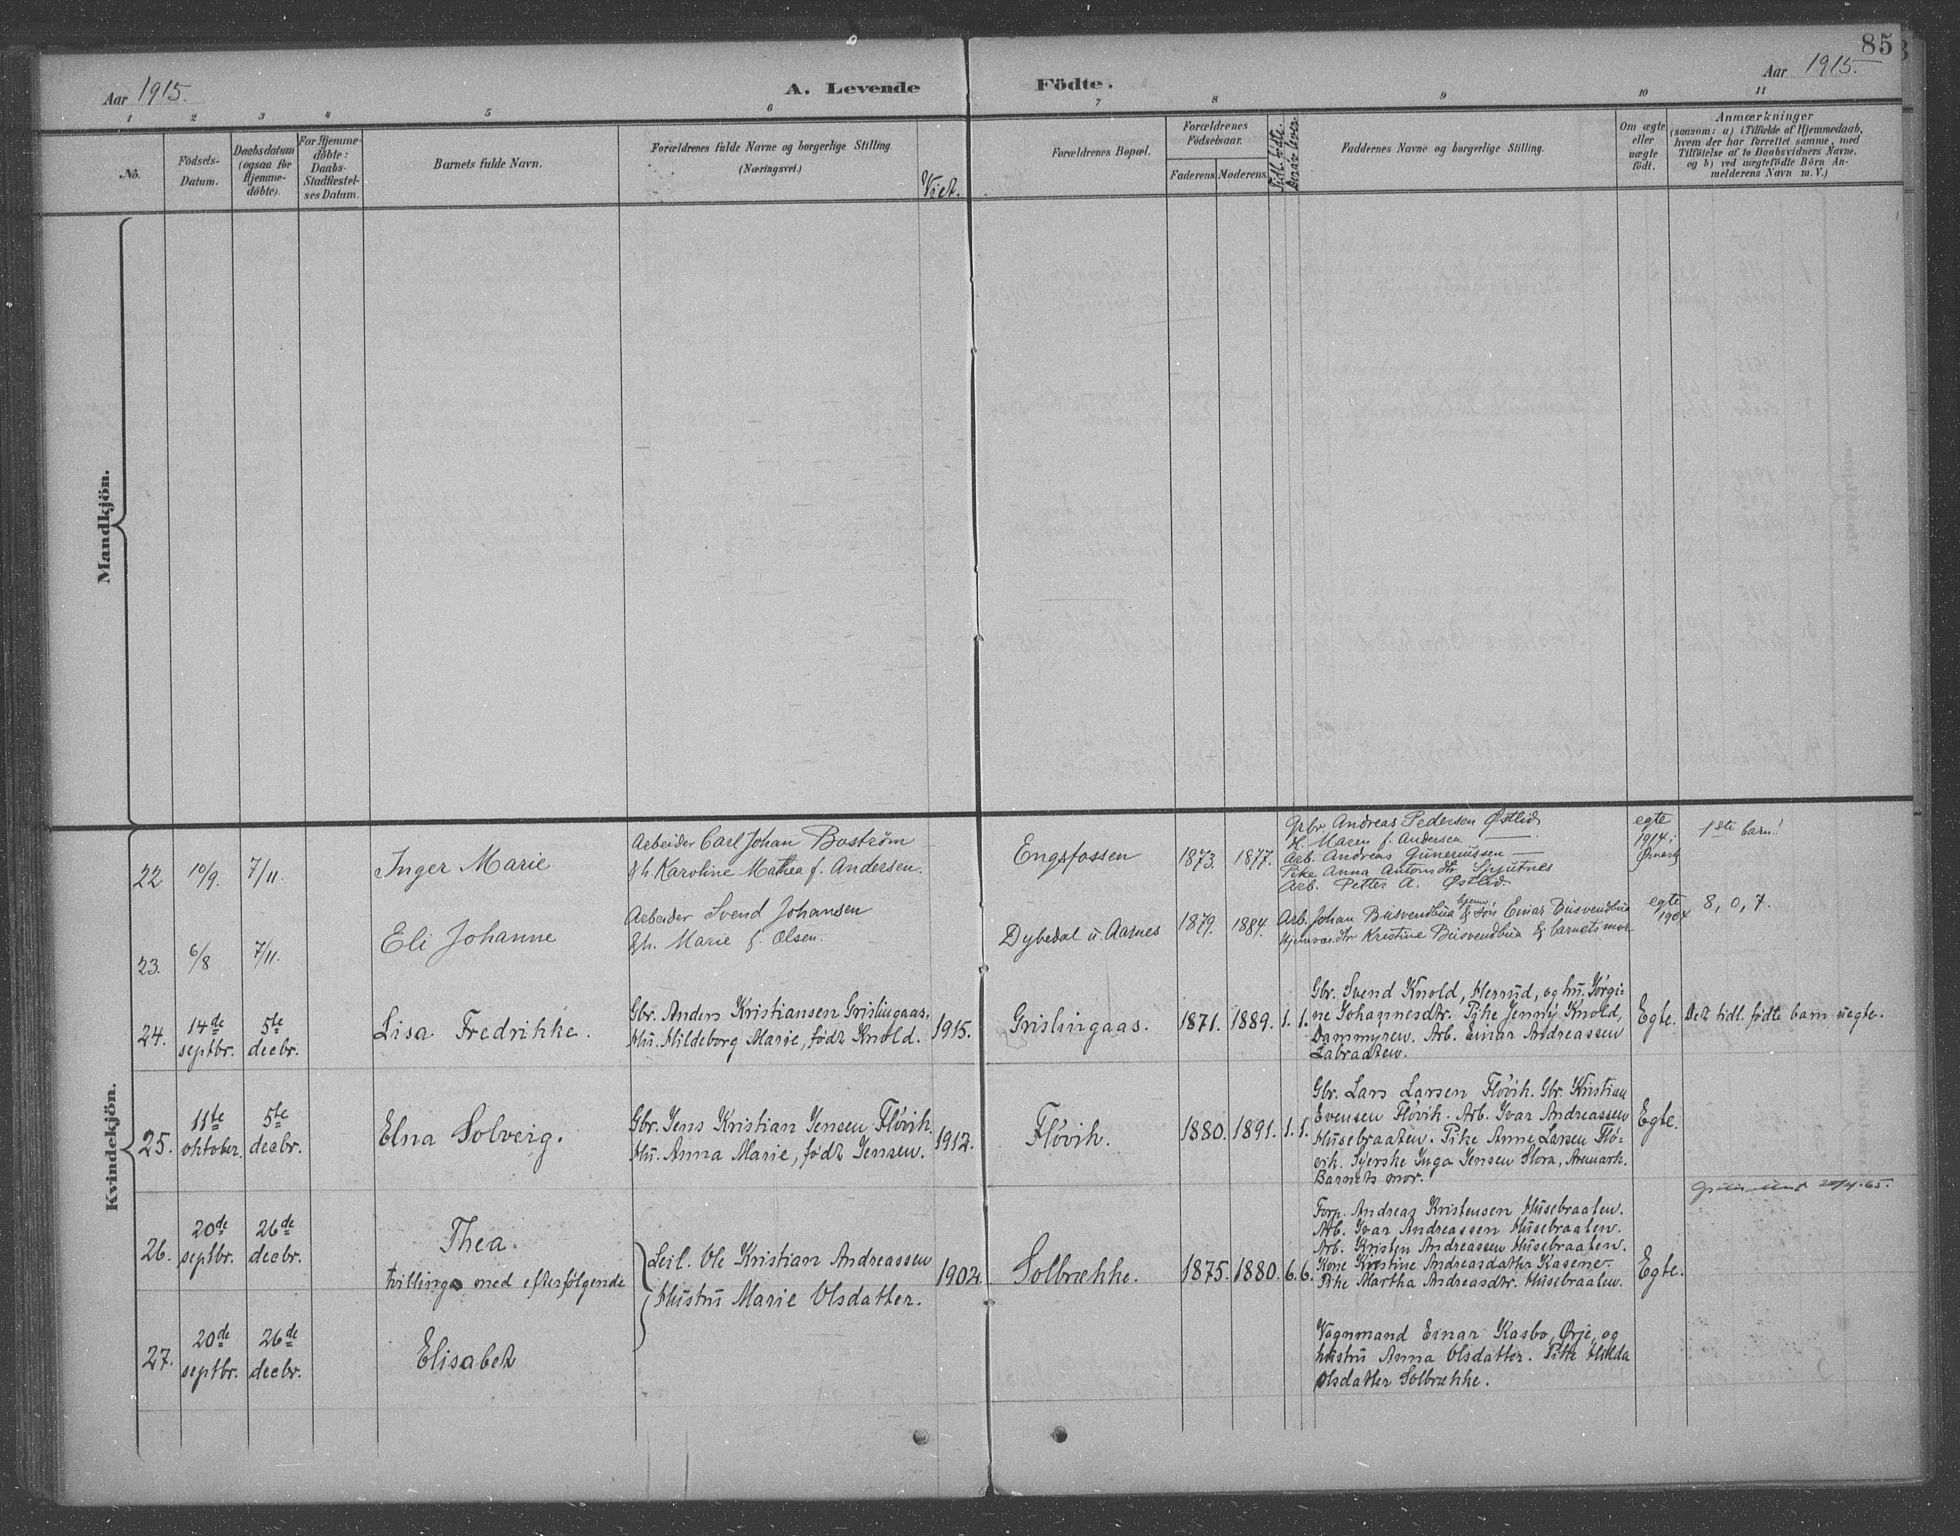 85
Aar 1915.
A. Levende Födte.
Aar 1915.
1 2 3 4 5 6 7 8 9 10 11
No.
Födsels-
Datum.
Daabsdatum
(ogsaa for
Hjemme-
döbte).
For Hjemme-
döbte:
Daabs-
Stadfæstel-
ses Datum.
Barnets fulde Navn.
Forældrenes fulde Navne og borgerlige Stilling.
(Næringsvei.)
Viet.
Forældrenes Bopæl.
Forældrenes
Födselsaar.
Faderens Moderens
Tidl. fødte.
Derav lever.
Faddernes Navne og borgerlige Stilling.
Om ægte
eller
uægte
födt.
Anmærkninger
(saasom: a) i Tilfælde af Hjemmedaab,
hvem der har forrettet samme, med
Tilföielse af to Daabsvidners Navne.
og b) ved uægtefödte Börn An-
melderens Navn m. V.)
Mandkjön.
Kvindekjön.
22 10/9. 7/11. Inger Marie
Arbeider Carl Johan Boström
gh. Karoline Mathea f. Andersen.
Engsfossen 1873. 1877.
Gbr. Andreas Pedersen Østlid
H. Maren f. Andersen —
Arb. Andreas Guneriussen —
Pike Anna Antonsdtr.
Arb. Petter A. Østlid
egte
1914 i
Ømark
1ste barn!
23. 6/8 7/11. Eli Johanne
Arbeider Svend Johansen
gh. Marie f. Olsen.
Dybedal u. Aarnes 1879. 1884.
Arb. Johan Buisvendbua & søn Einar Buisvendbua
Kristine Buisvendbua & barnets mor
egte
1904
8, 0, 7.
24. 14de septbr. 5te decbr. Lisa Fredrikke.
Gbr. Anders Kristiansen Grislingaas.
Hu. Hildeborg Marie, født Knold.
1915. Grislingaas. 1871. 1889. 1. 1.
Gbr. Svend Knold, Herrud, og hu. Jörgi-
ne Johannesdtr. Pike Jenny Knold,
Dammyren. Arb. Einar Andreassen
Labraaten.
Egte. Det tidl. fødte barn uegte.
25. 11te oktober. 5te decbr. Elna Solveig.
Gbr. Jens Kristian Jensen Flövik.
Hu. Anna Marie, født Jensen.
1912. Flövik. 1880. 1891. 1. 1.
Gbr. Lars Larsen Flövik. Gbr. Kristian
Evensen Flövik. Arb. Ivar Andreassen
Husebraaten. Pike Anne Larsen Flö-
vik. Syerske Inga Jensen Slora, Aremark.
Barnets mor.
Egte.
20/4.65.
26. 20de septbr. 26de decbr. Thea.
tvilling med efterfølgende
Leil. Ole Kristian Andreassen
Hustru Marie Olsdatter.
1902 Solbrække. 1875. 1880. 6. 6.
Forp. Andreas Kristensen Husebraaten.
Arb. Ivar Andreassen Husebraaten.
Arb. Kristen Andreassen Husebraaten.
Kone Kristine Andreasdatter Kasene.
Pike Martha Andreasdtr. Husebraaten.
Egte.
27. 20de septbr. 26de decbr. Elisabet
Vognmand Einar Kasbo, Ørje, og
hustru Anna Olsdatter. Pike Hilda
Olsdatter Solbrække.